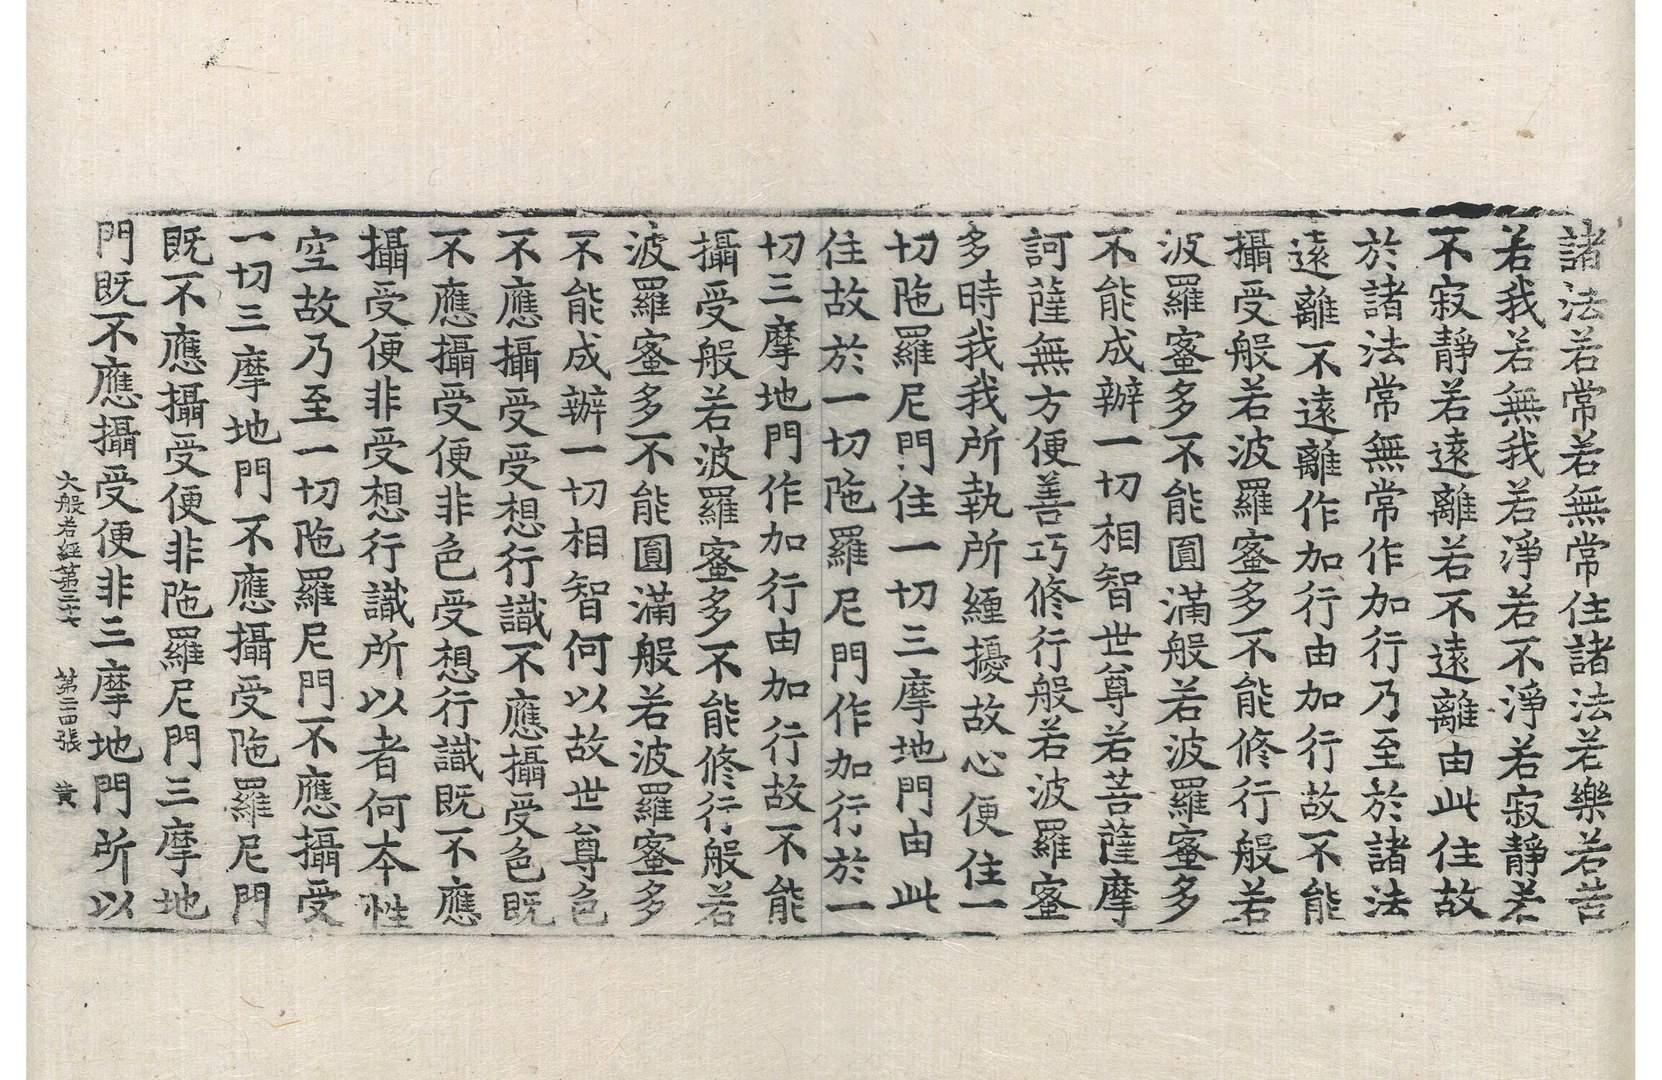 諸法若常若無常住諸法若樂若苦
若我若無我若淨若不淨若寂靜若
不寂靜若遠離若不遠離由此住故
於諸法常無常作加行乃至於諸法
遠離不遠離作加行由加行故不能
攝受般若波羅蜜多不能修行般若
波羅蜜多不能圓滿般若波羅蜜多
不能成辦一切相智世尊若菩薩摩
訶薩無方便善巧修行般若波羅蜜
多時我我所執所纏擾故心便住一
切陁羅尼門住一切三摩地門由此
住故於一切陁羅尼門作加行於一
切三摩地門作加行由加行故不能
攝受般若波羅蜜多不能修行般若
波羅蜜多不能圓滿般若波羅蜜多
不能成辦一切相智何以故世尊色
不應攝受受想行識不應攝受色既
不應攝受便非色受想行識既不應
攝受便非受想行識所以者何本性
空故乃至一切陁羅尼門不應攝受
一切三摩地門不應攝受陁羅尼門
既不應攝受便非陁羅尼門三摩地
門既不應攝受便非三摩地門所以
大般若經第三十七 第二四張 黃